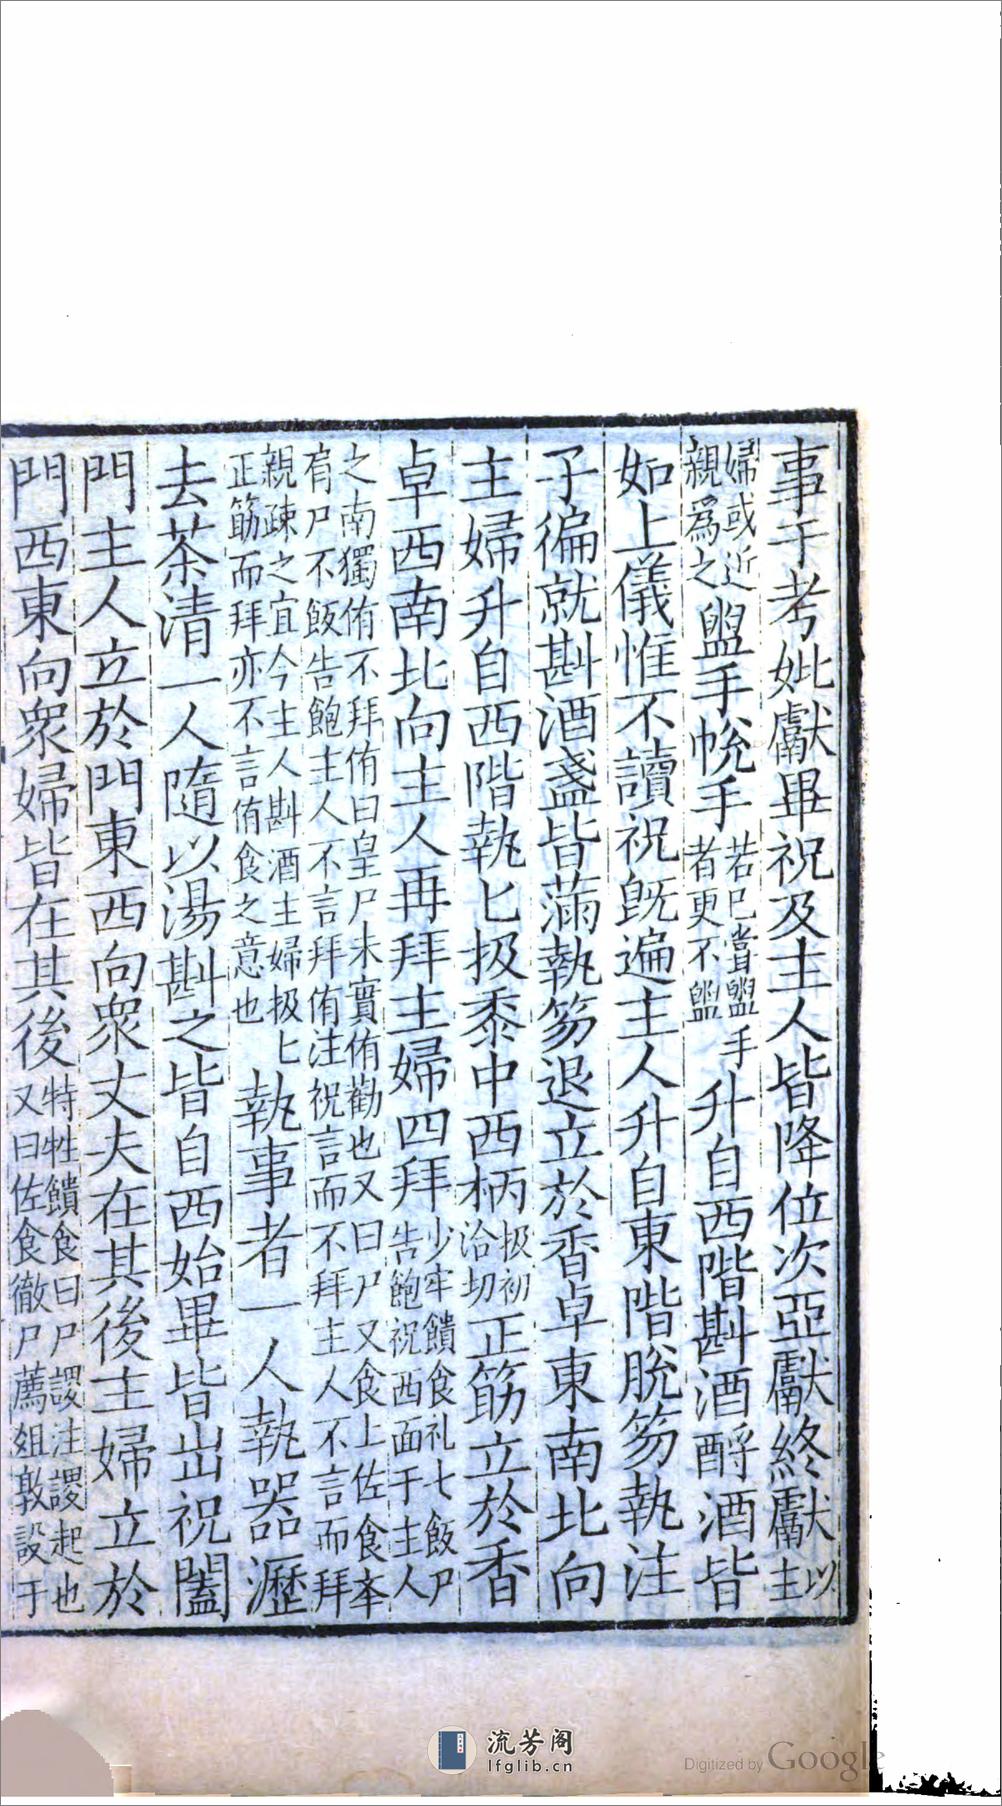 事于考妣獻畢祝及主人皆降位次亞獻終獻以主
婦或近親爲之盥手帨手若已嘗盥手者更不盥升自西階斟酒酹酒皆
如上儀惟不讀祝旣遍主人升自東階脫笏執注
子徧就斟酒盞皆滿執笏退立於香卓東南北向
主婦升自西階執匕扱黍中西柄扱初洽切正筯立於香
卓西南北向主人再拜主婦四拜少牢饋食礼七飯尸告飽祝西面于主人
之南獨侑不拜侑曰皇尸未實侑勸也又曰尸又食上佐食本有尸不飯告飽主人不言拜侑注祝言而不拜主人不言而拜
親疎之宜今主人斟酒主婦扱匕正筯而拜亦不言侑食之意也執事者一人執器瀝
去茶清一人隨以湯斟之皆自西始畢皆出祝闔
門主人立於門東西向衆丈夫在其後主婦立於
門西東向衆婦皆在其後特牲饋食曰尸謖注謖起也又曰佐食徹尸薦俎敦設于
流芳阁
lfglib.cn
Digitized by Google